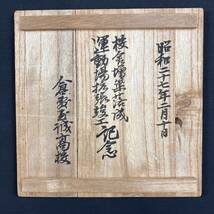 昭和二十七年二月十日
校舎増築落成
運動場拡張竣工記念
倉敷天城高校